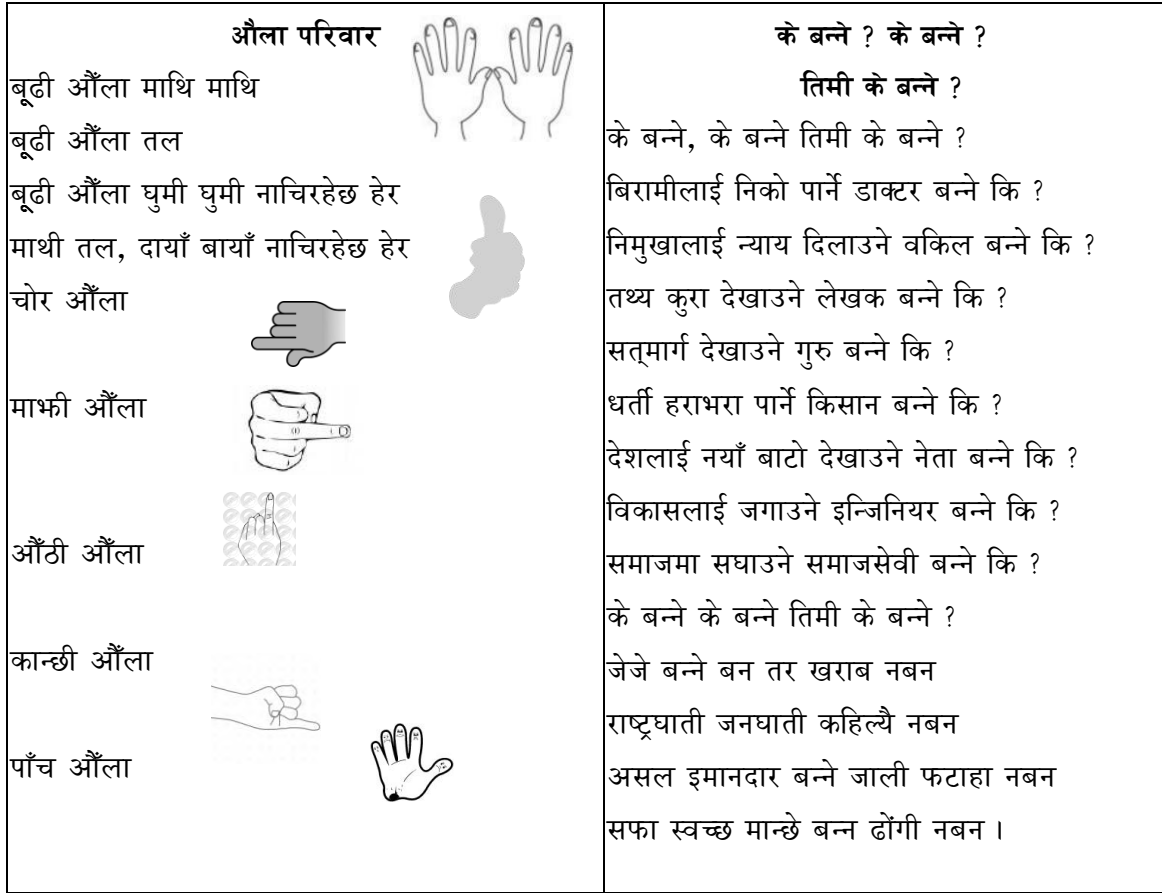 औला परिवार
बूढी औँला माथि माथि
बूढी औँला तल
बूढी औँला घुमी घुमी नाचिरहेछ हेर
माथी तल, दायाँ बायाँ नाचिरहेछ हेर
चोर औँला
माझी औँला
औँठी औँला
कान्छी औँला
पाँच औँला
के बन्ने ? के बन्ने ?
तिमी के बन्ने ?
के बन्ने, के बन्ने तिमी के बन्ने ?
बिरामीलाई निको पार्ने डाक्टर बन्ने कि ?
निमुखालाई न्याय दिलाउने वकिल बन्ने कि ?
तथ्य कुरा देखाउने लेखक बन्ने कि ?
सत्‌मार्ग देखाउने गुरु बन्ने कि ?
धर्ती हराभरा पार्ने किसान बन्ने कि ?
देशलाई नयाँ बाटो देखाउने नेता बन्ने कि ?
विकासलाई जगाउने इन्जिनियर बन्ने कि ?
समाजमा सघाउने समाजसेवी बन्ने कि ?
के बन्ने के बन्ने तिमी के बन्ने ?
जेजे बन्ने बन तर खराब नबन
राष्ट्रघाती जनघाती कहिल्यै नबन
असल इमानदार बन्ने जाली फटाहा नबन
सफा स्वच्छ मान्छे बन्न ढोंगी नबन ।